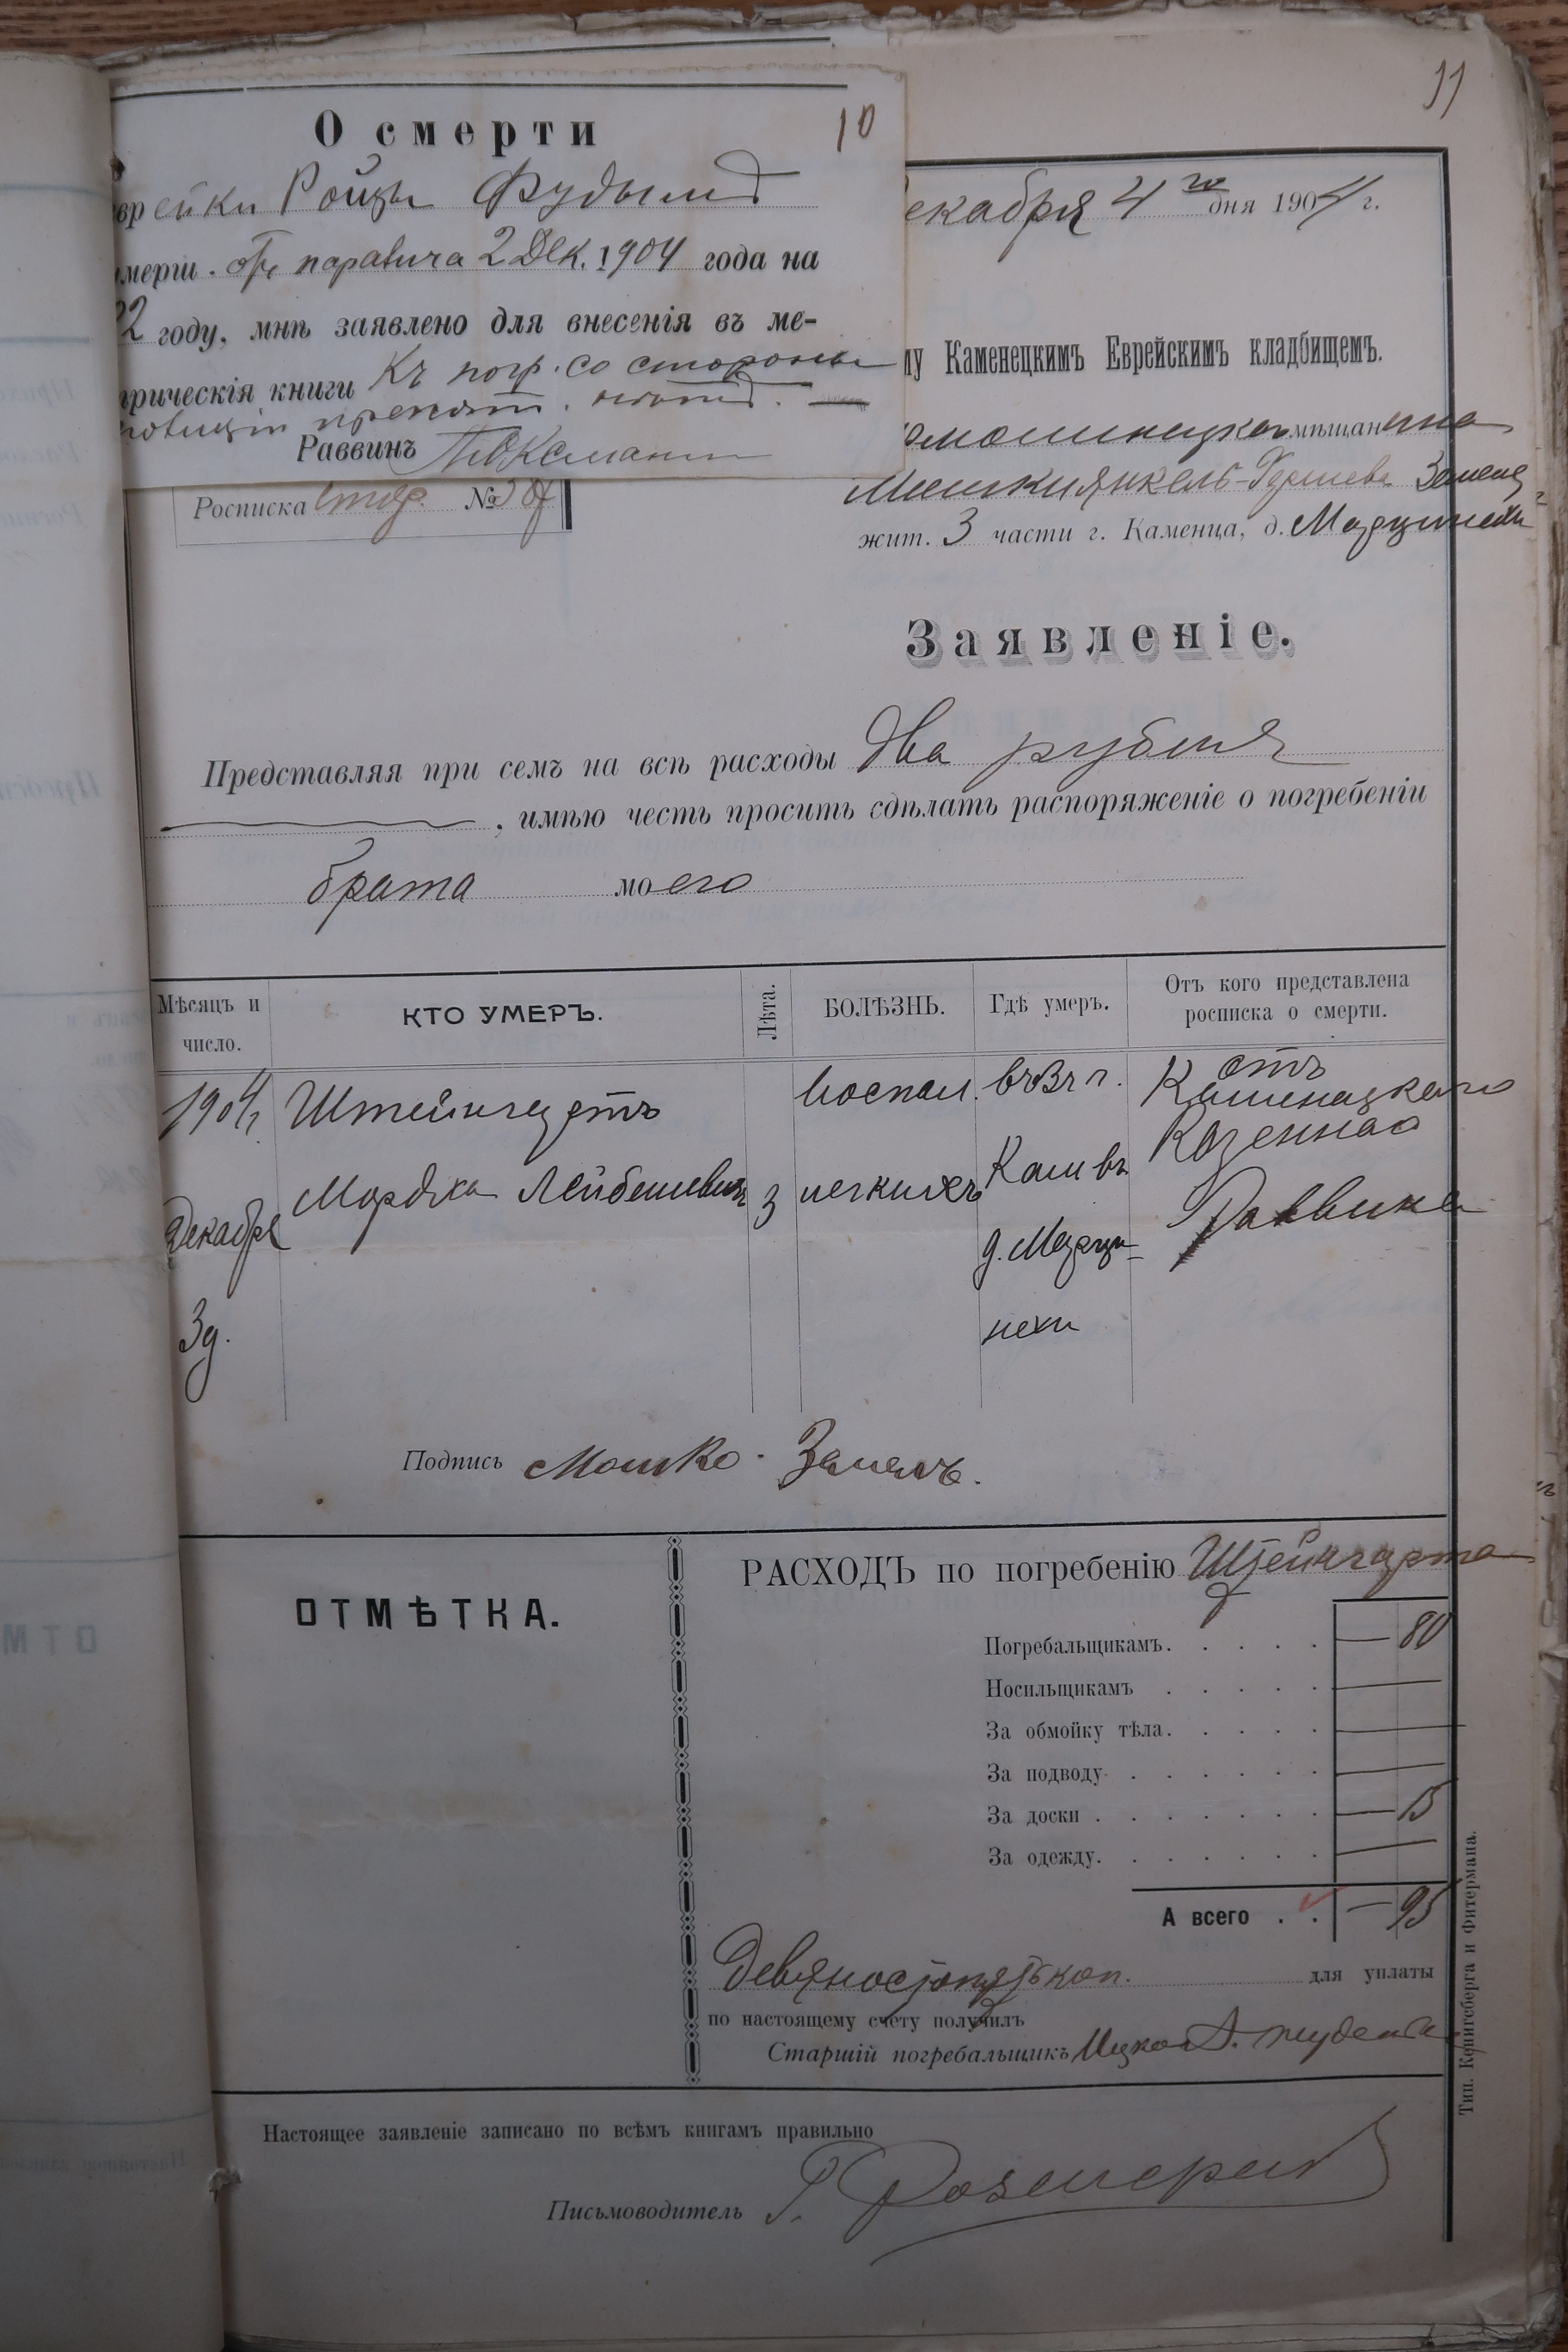 11
О смерти
10
врейки Ройзы Фудым
мерш. отъ паралича 2 Дек. 1904 года на
2 году, мнѣ заявлено для внесенія въ ме-
рическія книги Къ погр. со стороны
Раввинъ
екабря 4 го дня 1904 г.
му Каменецкимъ Еврейскимъ кладбищемъ.
мѣщанина
Мошки Янкель-Гершева
жит. 3 части г. Каменца, д.
Росписка №
Заявленіе.
Представляя при семъ на всѣ расходы два рубля
, имѣю честь просить сдѣлать распоряженіе о погребеніи
брата моего
Мѣсяцъ и число.
КТО УМЕРЪ.
Лѣта.
БОЛѢЗНЬ.
Гдѣ умеръ.
Отъ кого представлена росписка о смерти.
1904 г. Декабря 3 д.
Штейнгартъ Мордко Лейбишевичъ
3
Воспал. легкихъ
въ 3 ч г. Кам въ д. Марци-
нехи
отъ Каменецкаго Казеннаго Раввина
Подпись Мошко
ОТМѢТКА.
РАСХОДЪ по погребенію Штейнгарта
Погребальщикамъ. — 80
Носильщикамъ —
За обмойку тѣла. —
За подводу —
За доски — 15
За одежду. —
А всего — 95
Девяносто пять коп. для уплаты
по настоящему счету получилъ
Старшій погребальщикъ Ицко
Настоящее заявленіе записано по всѣмъ книгамъ правильно
Письмоводитель
Тип. Кенигсберга и Фитермана.